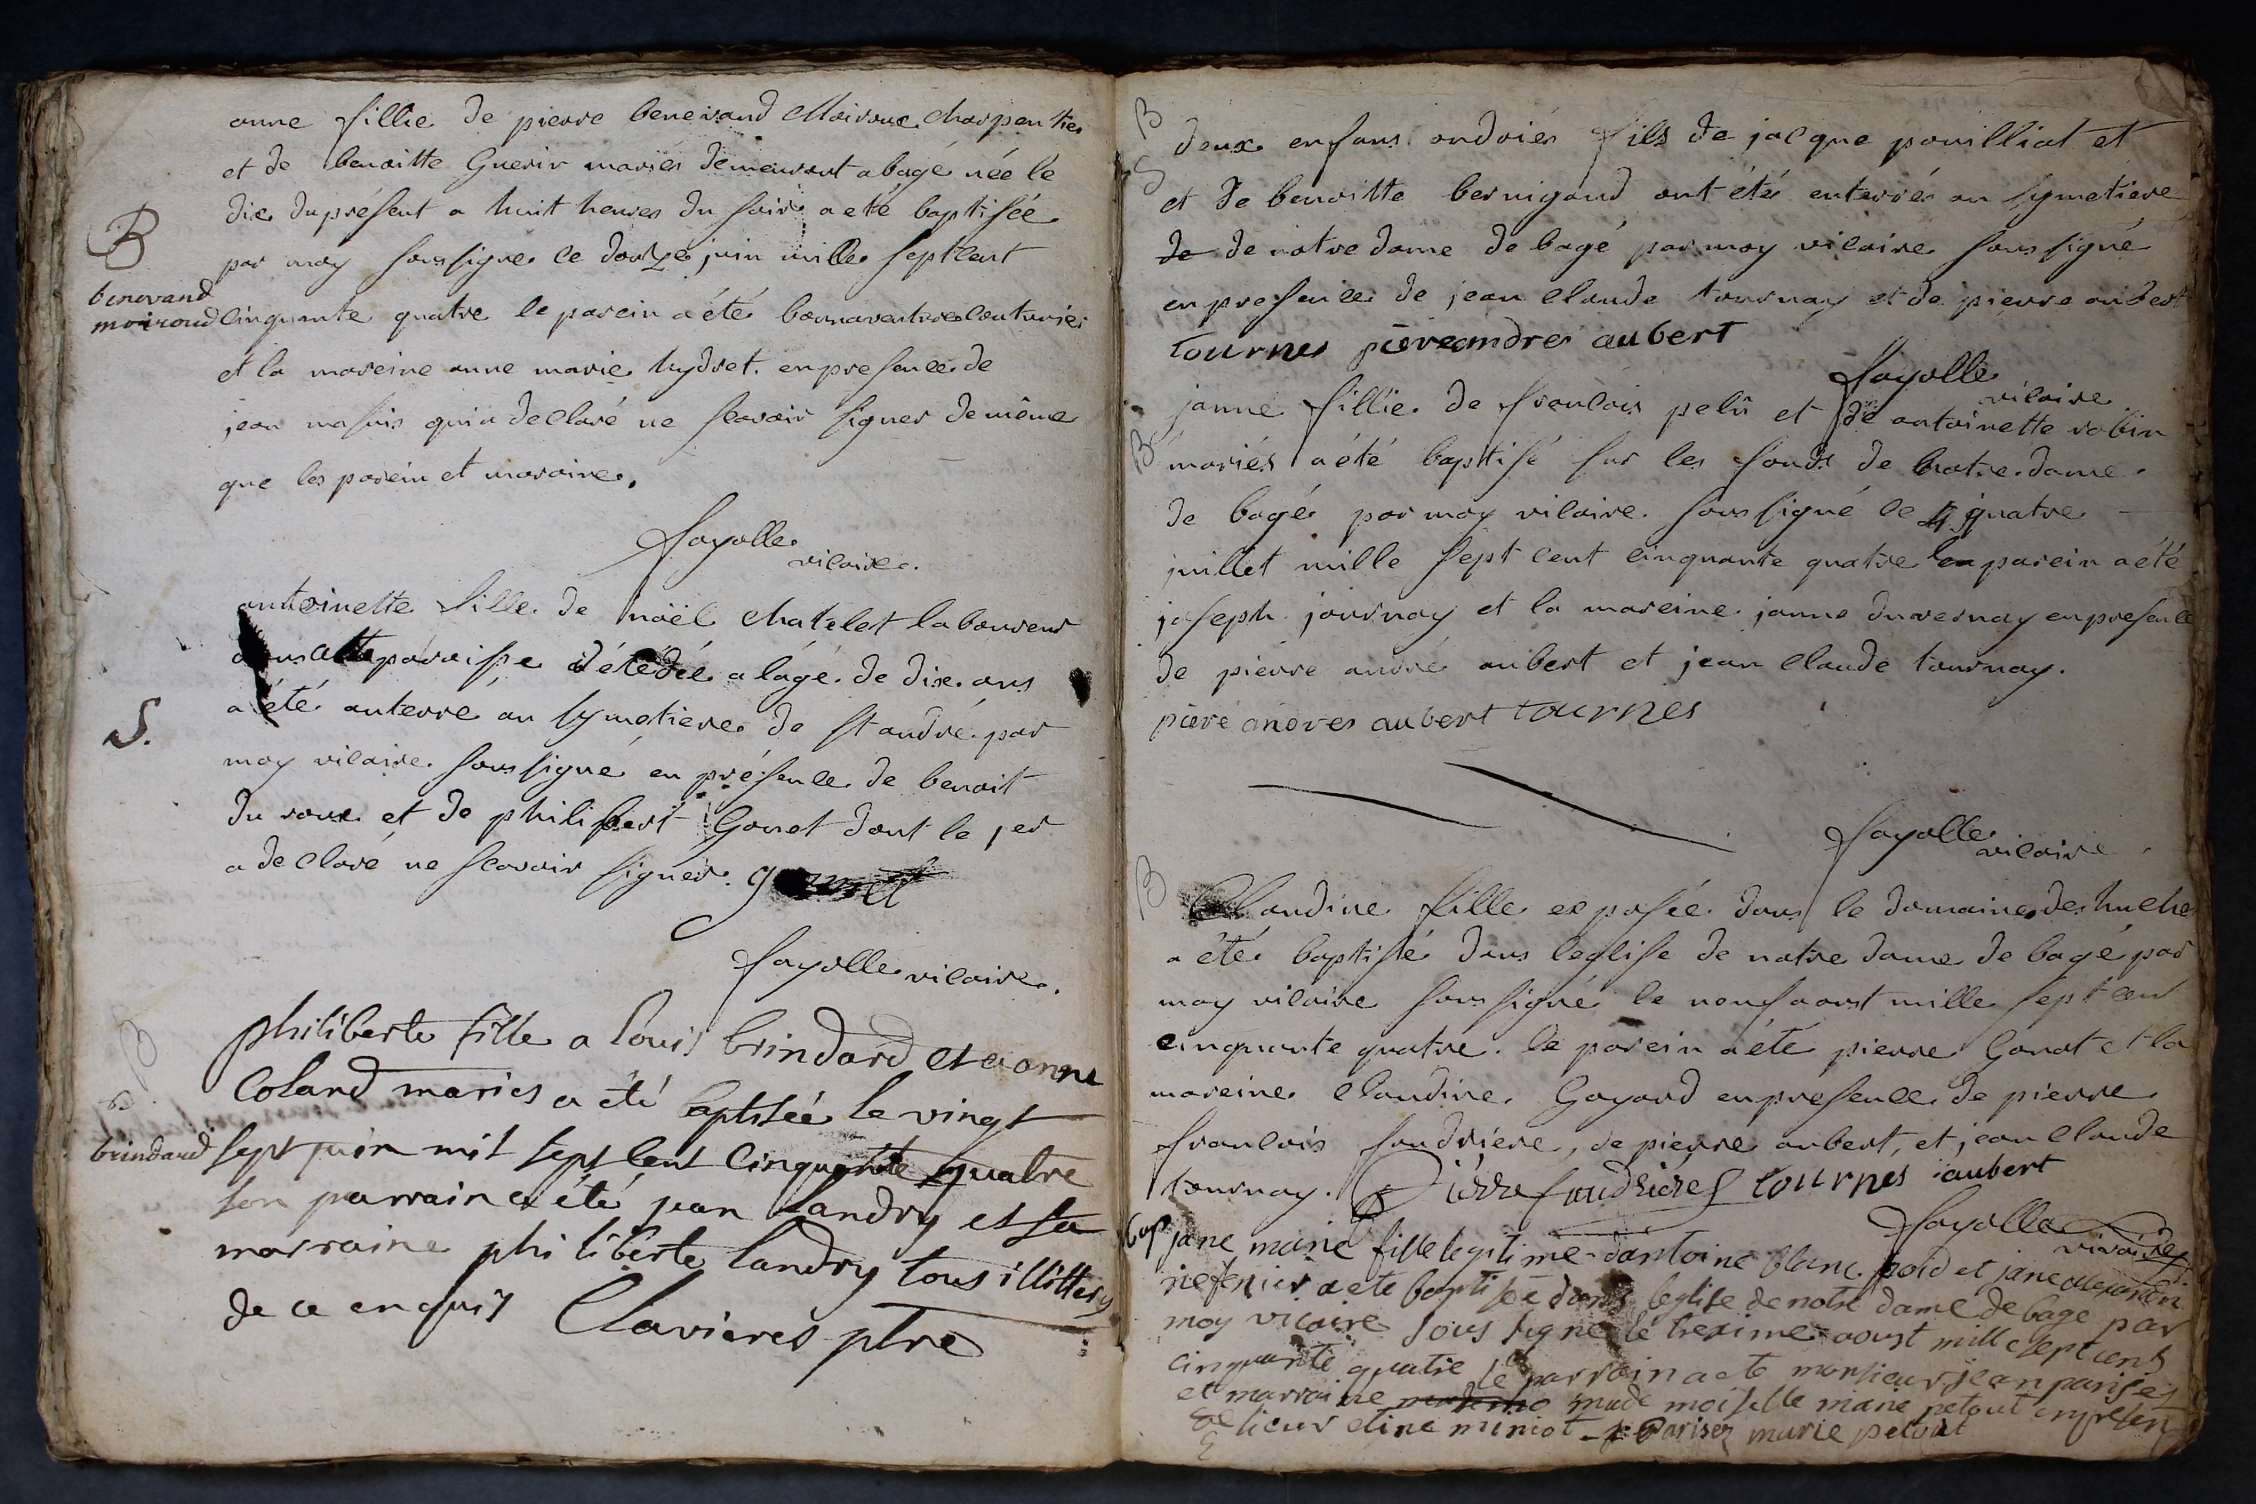 anne fillie de pierre benevand Moiroux charpentier
et de benoitte Guerin mariés demeurant a bagé née le
dix du présent a huit heures du soir a eté baptisée
par moy soussigne ce douze juin mille septcent
B
benevand
moiroud
cinquante quatre le parein a été bonnaventure couturier
et la mareine anne marie hydret. en presence de
jean masuis qui a declaré ne scavoir signer de même
que les parein et maraine.
fayolle
vicaire.
antoinette fille de noël chatelet laboureur
cette paroisse décédée a lágé de dix ans
a été anterré au symetiere de st andré par
S.
moy vicaire soussigné en présence de benoit
du roux et de philibert Gonet dont le 1er
a declaré ne scavoir signer.
fayolle vicaire.
B
philiberte fille a Louis brindard et a anne
Coland maries a été baptisée le vingt
brindand
sept juin mil sept cent cinquante quatre
son parrain a été jean Landry et sa
marraine philiberte landry tous illitterés
de ce enquis Clavieres ptre
B
S
deux enfans ondoiés fils de jacque pouilliat et
et de benoitte bernigaud ont étés enterrés au symetiere
de de notre dame de bagé par moy vicaire soussigné
en presence de jean claude tournay et de pierre aubert
tournes piere andres aubert
fayolle
vicaire
B
janne fillie de francois pelû et de antoinette robin
mariés a été baptisé sur les fonds de notre dame
de bagé par moy vicaire soussigné le 4 quatre
juillet mille sept cent cinquante quatre le parein a été
joseph journay et la mareine janne duvernay en presence
de pierre andré aubert et jean claude tournay.
piere andres aubert tournes
fayolle
vicaire
B
Claudine fille exposée dans le domaine des huches
a été baptisé dans leglise de notre dame de bagé par
moy vicaire soussigné le neuf aoust mille sept cent
cinquante quatre. le parein a été pierre Gonot et la
mareine claudine Goyard en presence de pierre
francois foudriere, de pierre aubert, et jean claude
tournay. Pierre foudrieres tournes aubert
fayolle
vicaire
bap
jane marie fille legitime dantoine blanc et jane
a ete baptisée dans leglise de notre dame de bage par
moy vicaire sous signe le aoust mille sept cents
cinquante quatre le parrain a ete monsieur jean parisez
et marraine made moiselle marie petout en presen
de sieur miniot parisez marie petout